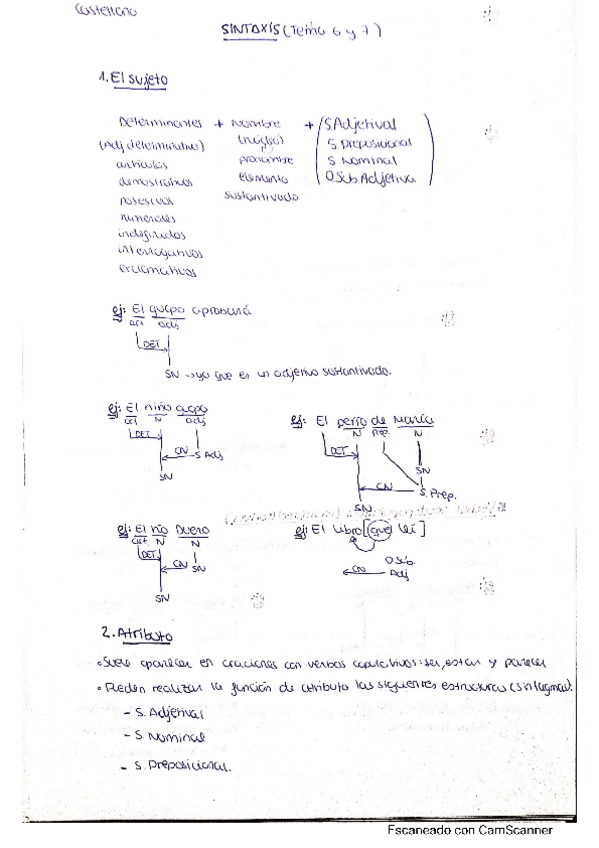 Castellano
SINTAXIS (Tema 6 y 7)
1. El sujeto
Determinantes + Nombre + (S Adjetival
(Adj determinativo) (núcleo) S preposicional
artículos pronombre S. Nominal
demostrativos elemento O. Sub. Adjetiva)
posesivos sustantivado
numerales
indefinidos
interrogativos
exclamativos
ej: El guapo aprobará
art adj
DET
SN → ya que es un adjetivo sustantivado.
ej: El niño guapo
art N adj
DET
CN S Adj
SN
ej: El perro de María
N Prep. N
DET
SN
CN S. Prep.
SN
ej: El río Duero
art. N N
DET
CN SN
SN
ej: El libro [que leí]
O Sub.
CN Adj
2. Atributo
• Suele aparecer en oraciones con verbos copulativos: ser, estar y parecer
• Pueden realizar la función de atributo las siguientes estructuras (sintagmas):
- S. Adjetival
- S. Nominal
- S. Preposicional.
Escaneado con CamScanner